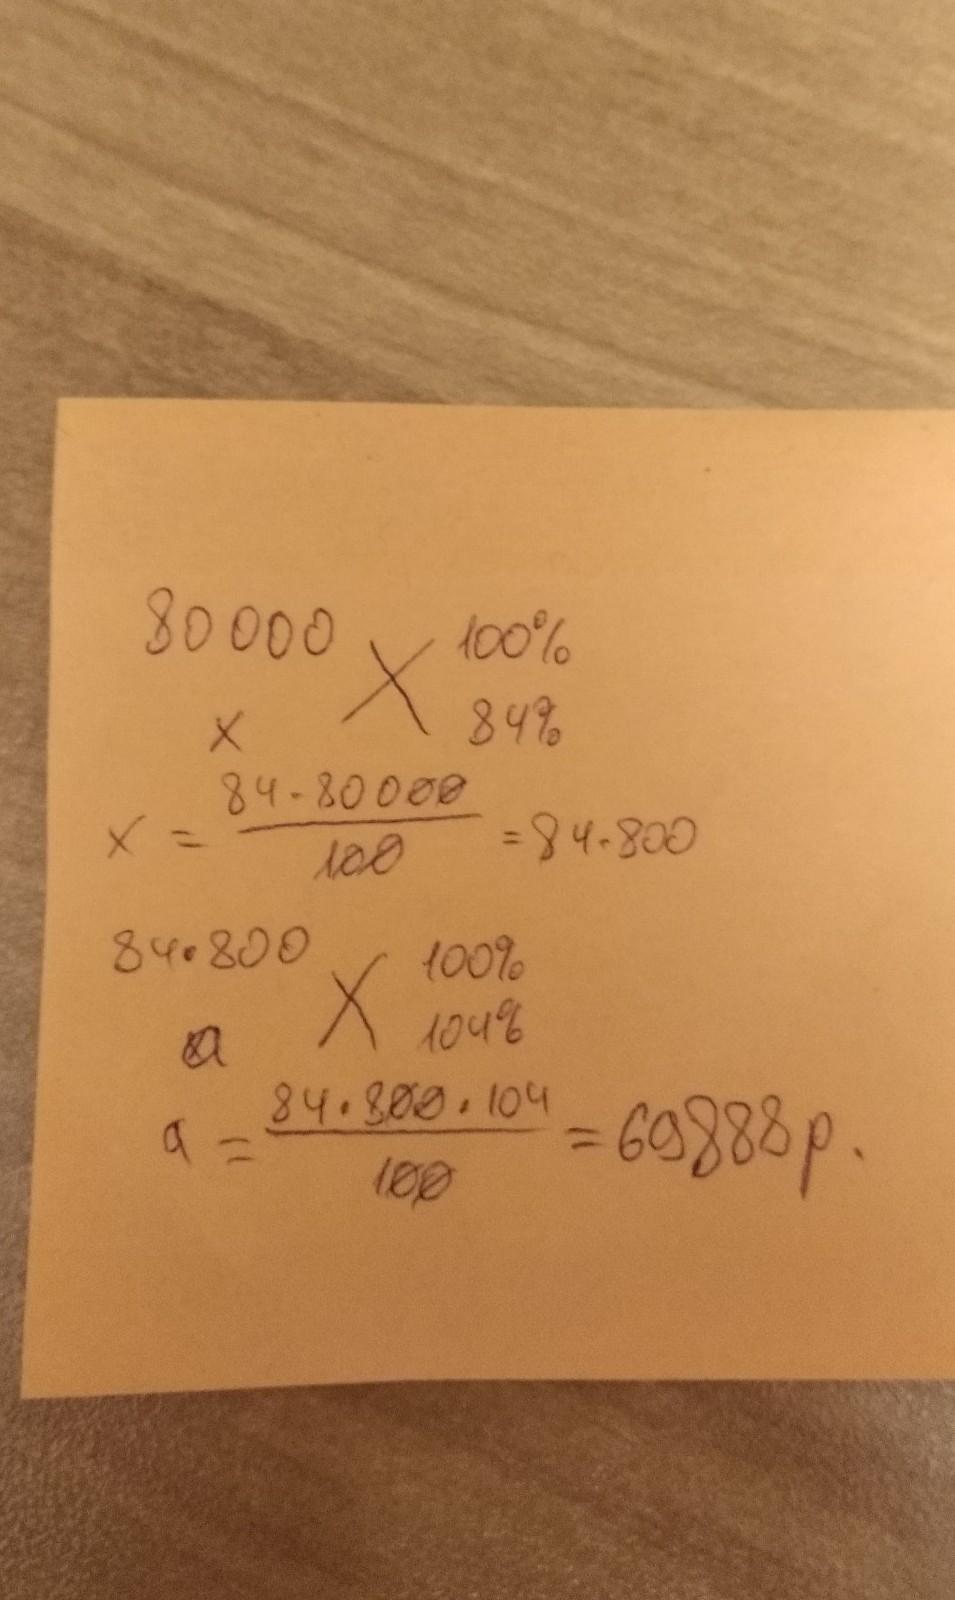 80000 100%
x 84%
x = 84·80000/100 = 84·800
84·800 100%
a 104%
a = 84·800·104/100 = 69888р.